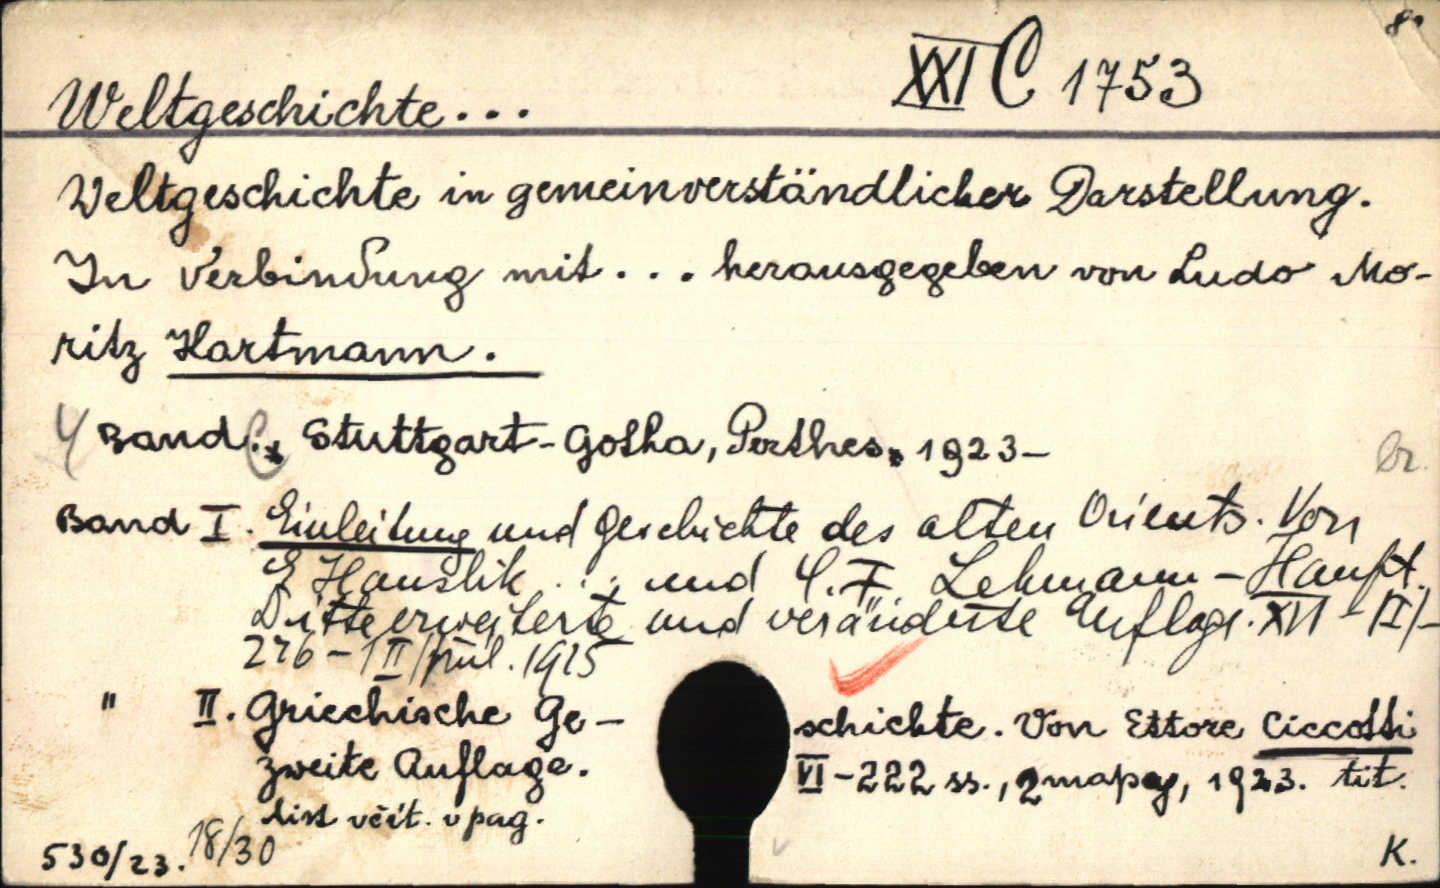 8°
XXI C 1753
Weltgeschichte...
Weltgeschichte in gemeinverständlicher Darstellung.
In Verbindung mit... herausgegeben von Ludo Mo-
ritz Hartmann.
4 Band. Stuttgart-Gotha, Perthes. 1923-
br.
Band I. Einleitung und Geschichte des alten Orients. Von
E Hanslik ... und C.F. Lehmann-Haupt.
Dritte erweiterte und veränderte Auflage. XVI-
276- 1925
" II. Griechische Ge- schichte. Von Ettore Ciccotti
zweite Auflage. VI-222 ss., 2 mapy, 1923. tit.
list včit. v pag.
530/23. 18/30
K.